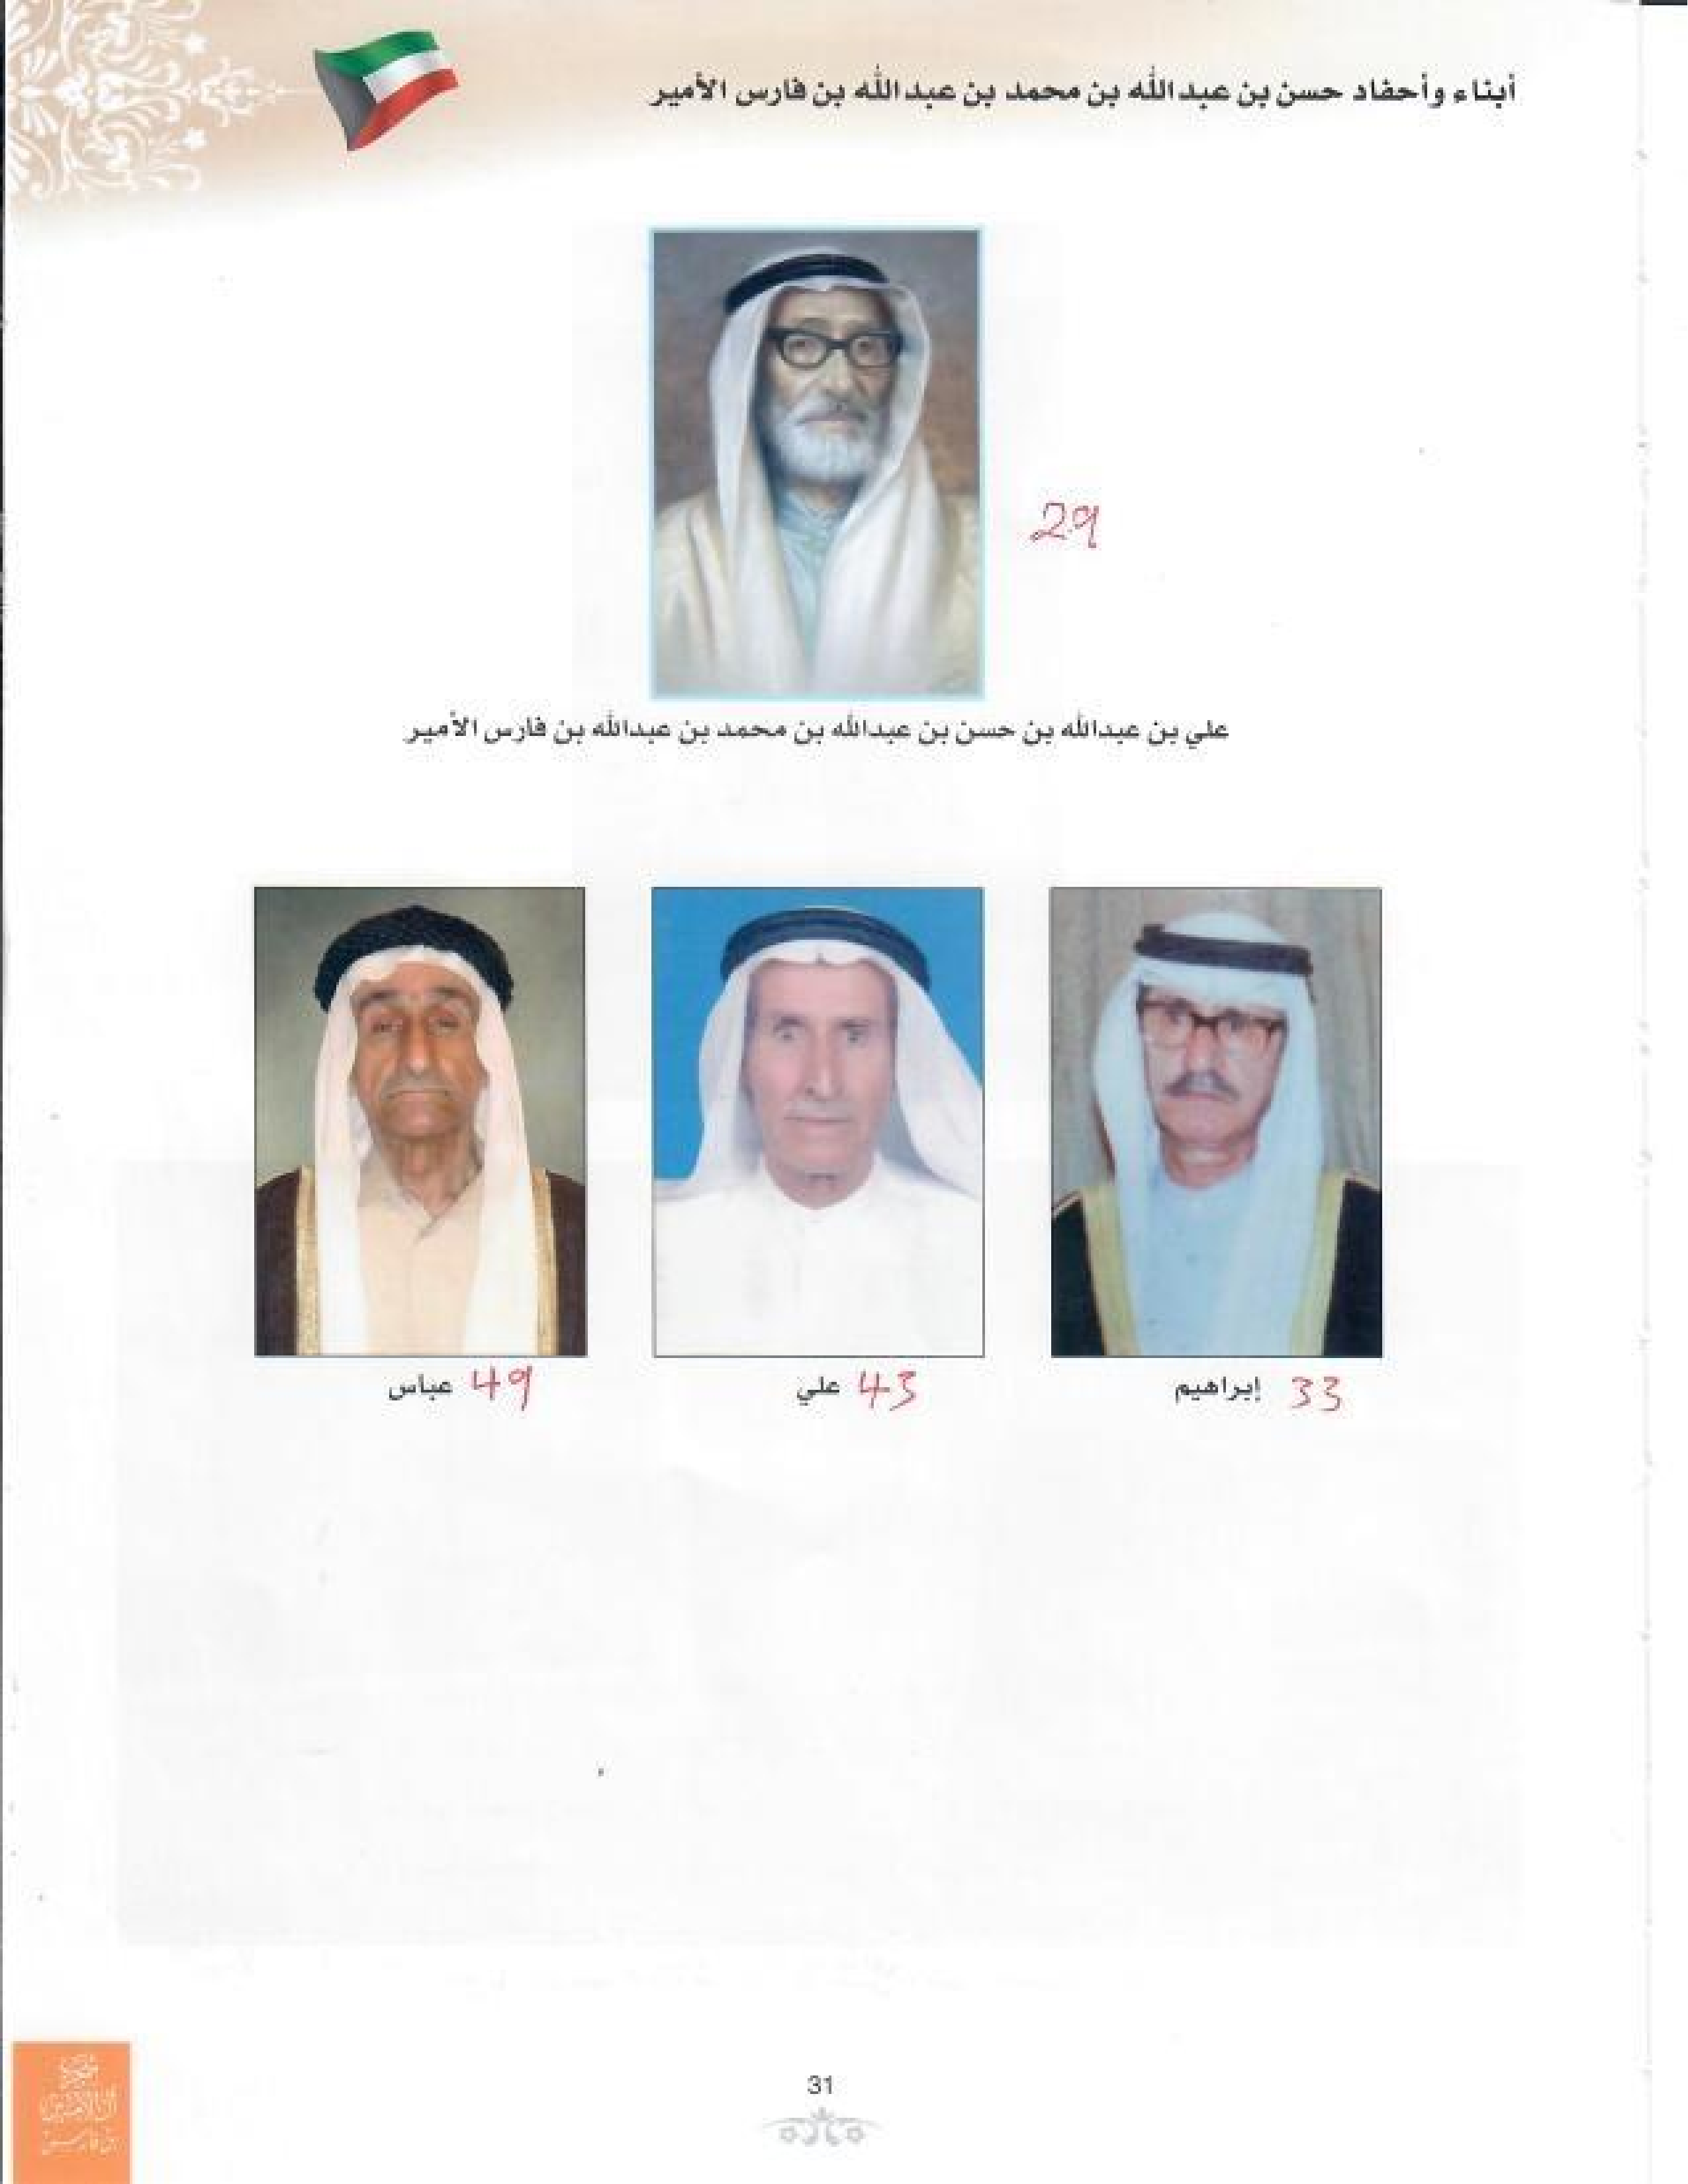 أبناء وأحفاد حسن بن عبد الله بن محمد بن عبد الله بن فارس الأمير
29
علي بن عبدالله بن حسن بن عبدالله بن محمد بن عبدالله بن فارس الأمير
33 إبراهيم
43 علي
49 عباس
شجرة
بن فارس
31